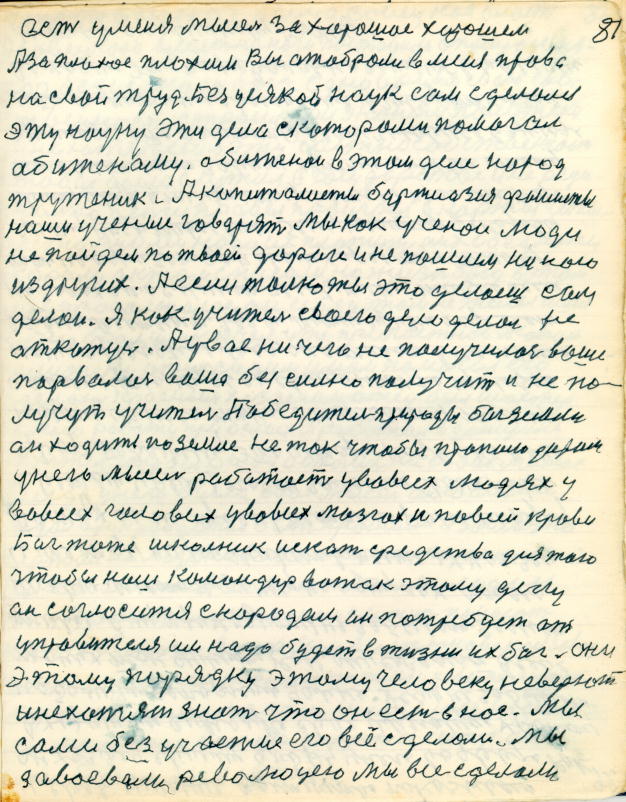 81
есть у меня мысля за хорошое хорошем
А за плохое плохим Вы отоброли в меня права
на свой труд. Без усякой наук сам сделался
эту науку Эти дела с которами помогал
абиженаму. абиженой в этом деле народ
труженик. А копиталисты буржазия фашисты
наши ученые говарят мы как ученои люди
не пойдем по твоей дороги и не пошлем ни кого
из других. А если только ты это делаеш сам
делои. Я как учител своего дело делал не
аткажус. А у вас ни чего не получилоя ваше
порвалоя ваша без силно получит и не по-
лучут учител Победител природы бог земли
ан ходить по земле не ток чтобы пропало даром
у него мысля работает у вовсех людях у
вовсех головах у вовсех мозгах и по всей крови
Бог тоже школник искат средства для того
чтобы наш командир вот как этому делу
ан согласится с народам ан потребует от
управителя им надо будет в жизни их бог. они
этому порядку этому человеку не верют
и не хотят знат что он ест в нос. Мы
сами без участие его всё сделоли. Мы
завоевали революцею мы все сделоли